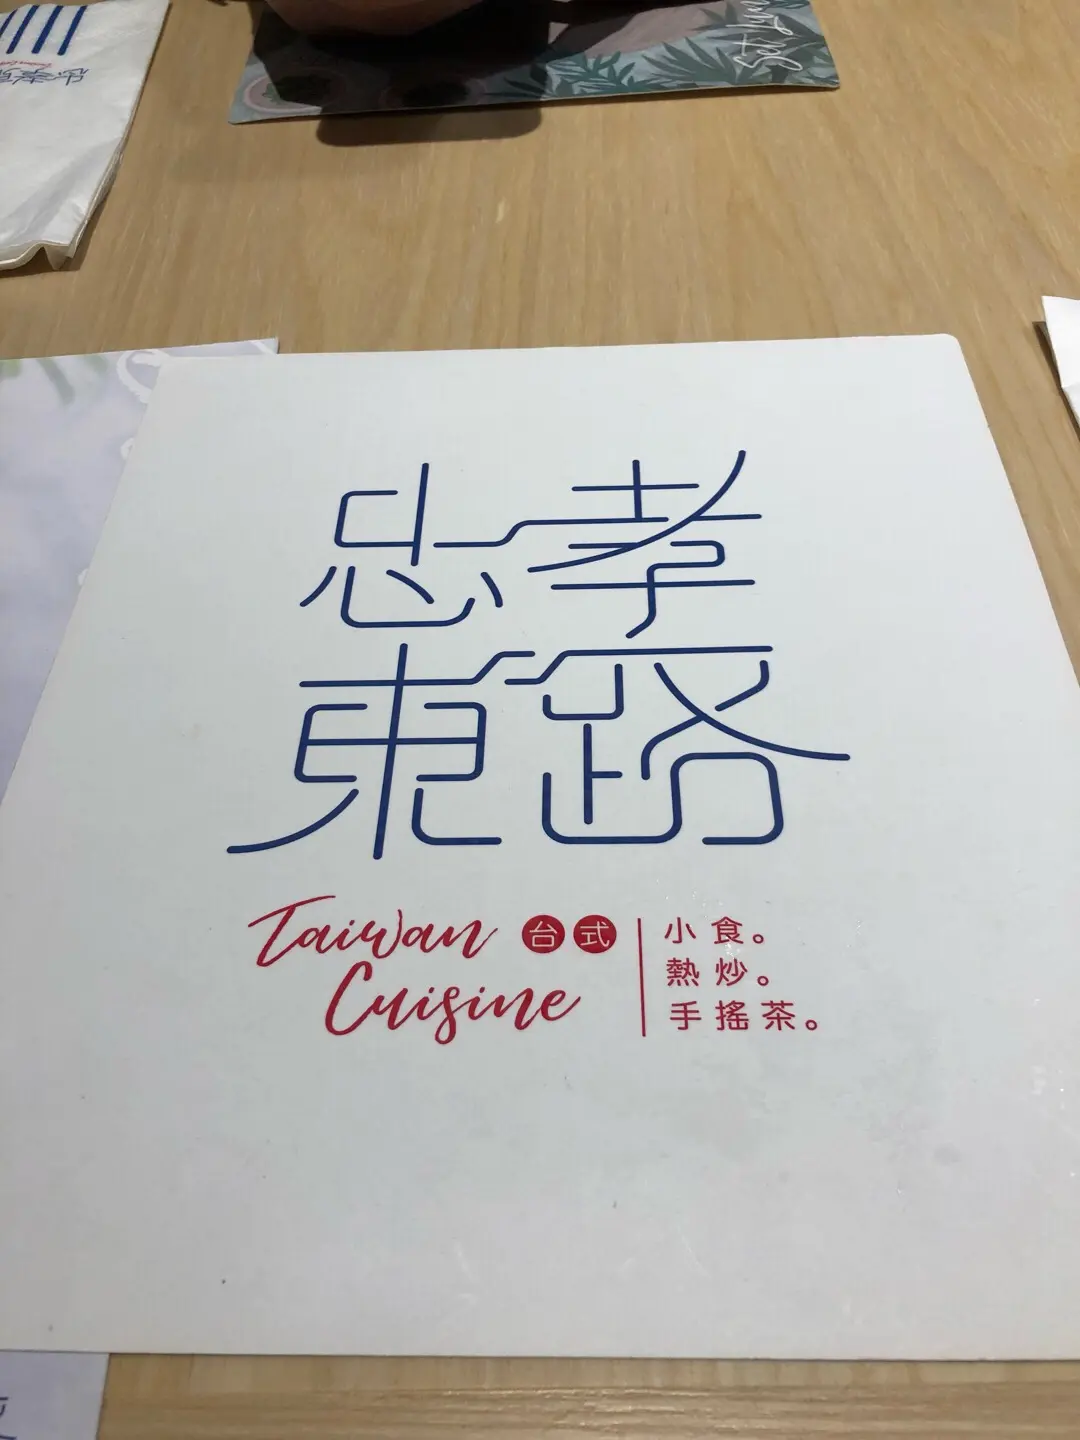 Set Lun
忠孝
東路
Taiwan 台式
Cuisine
小食。
熱炒。
手搖茶。